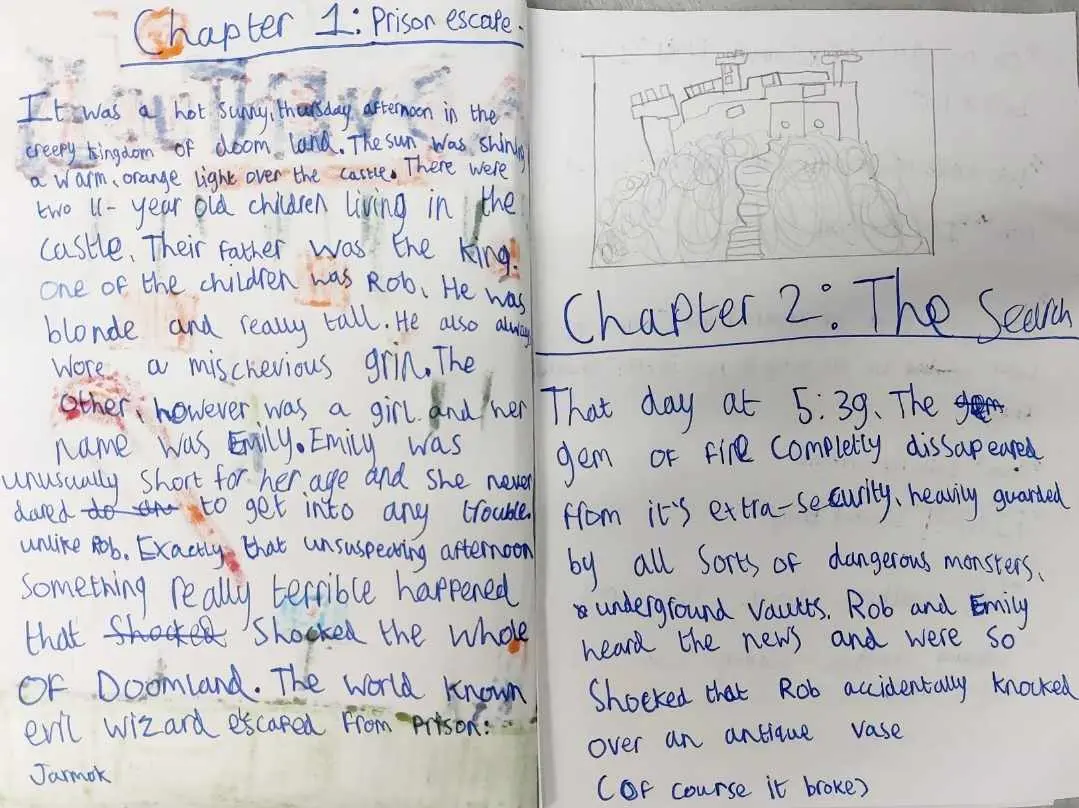 Chapter 1: Prison escape.
It was a hot sunny, thursday afternoon in the
creepy kingdom of doom land. The sun was shining
a warm, orange light over the castle. There were
two 11-year old children living in the
castle. Their father was the king.
One of the children was Rob. He was
blonde and really tall. He also always
wore a mischevious grin. The
other, however was a girl and her
name was Emily. Emily was
unusually short for her age and she never
dared to get into any trouble.
unlike Rob. Exactly that unsuspecting afternoon
something really terrible happened
that Shocked Shocked the whole
OF Doomland. The world known
evil wizard escaped from prison:
Jarmok
Chapter 2: The Search
That day at 5:39, The gem
gem of fire completly dissapeared
from it's extra-security, heavily guarded
by all sorts of dangerous monsters,
underground vaults. Rob and Emily
heard the news and were so
shocked that Rob accidentally knocked
over an antique vase
(OF course it broke)